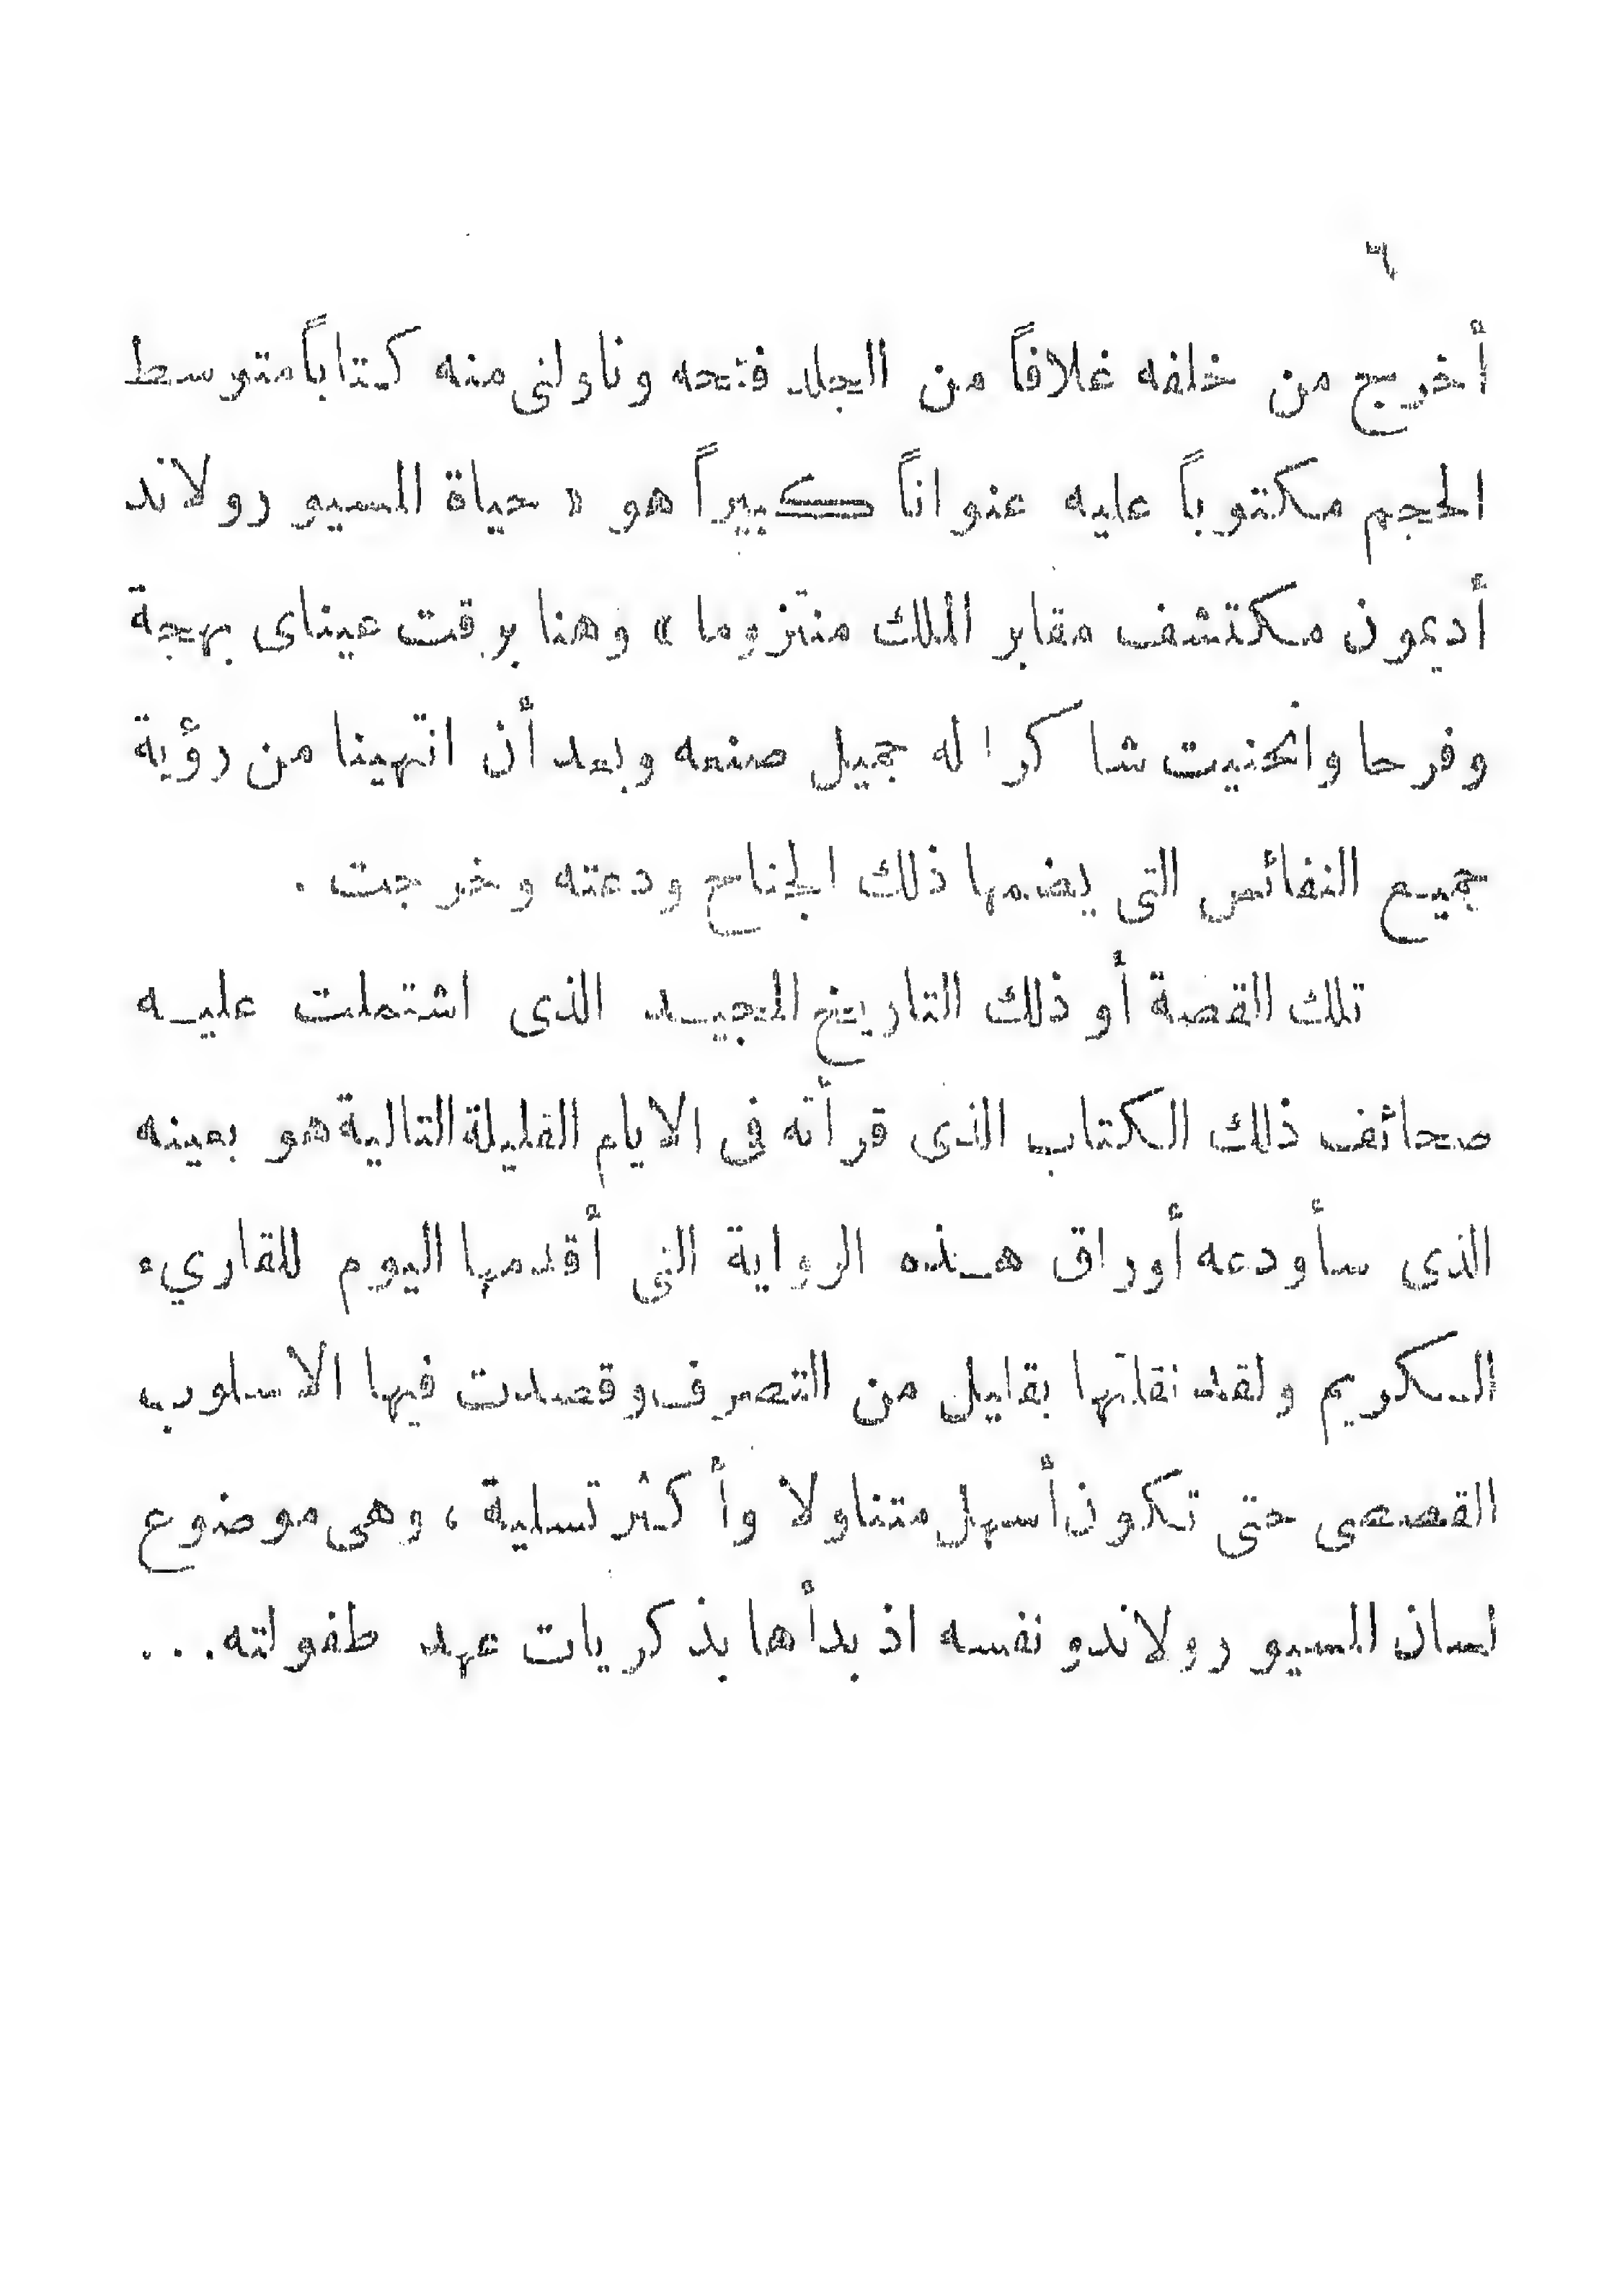 ٦
أخرج من خلفه غلافاً من الجلد فتحه وناولنى منه كتاباً متوسط
الحجم مكتوباً عليه عنواناً كبيراً هو « حياة المسيو رولاند
أديمون مكتشف مقابر الملك منتزوما » وهنا برقت عيناى بهجة
وفرحا وانحنيت شاكرا له جميل صنعه وبعد أن انتهينا من رؤية
جميع النفائس التى يضمها ذلك الجناح ودعته وخرجت .
تلك القصة أو ذلك التاريخ المجيد الذى اشتملت عليه
صحائف ذلك الكتاب الذى قرأته فى الايام القليلة التالية هو بعينه
الذى سأودعه أوراق هذه الرواية التى أقدمها اليوم للقاريء
الكريم ولقد نقلتها بقليل من التصرف وقصدت فيها الاسلوب
القصصى حتى تكون أسهل متناولا وأكثر تسلية ، وهى موضوع
لسان المسيو رولاندو نفسه اذ بدأها بذكريات عهد طفولته...